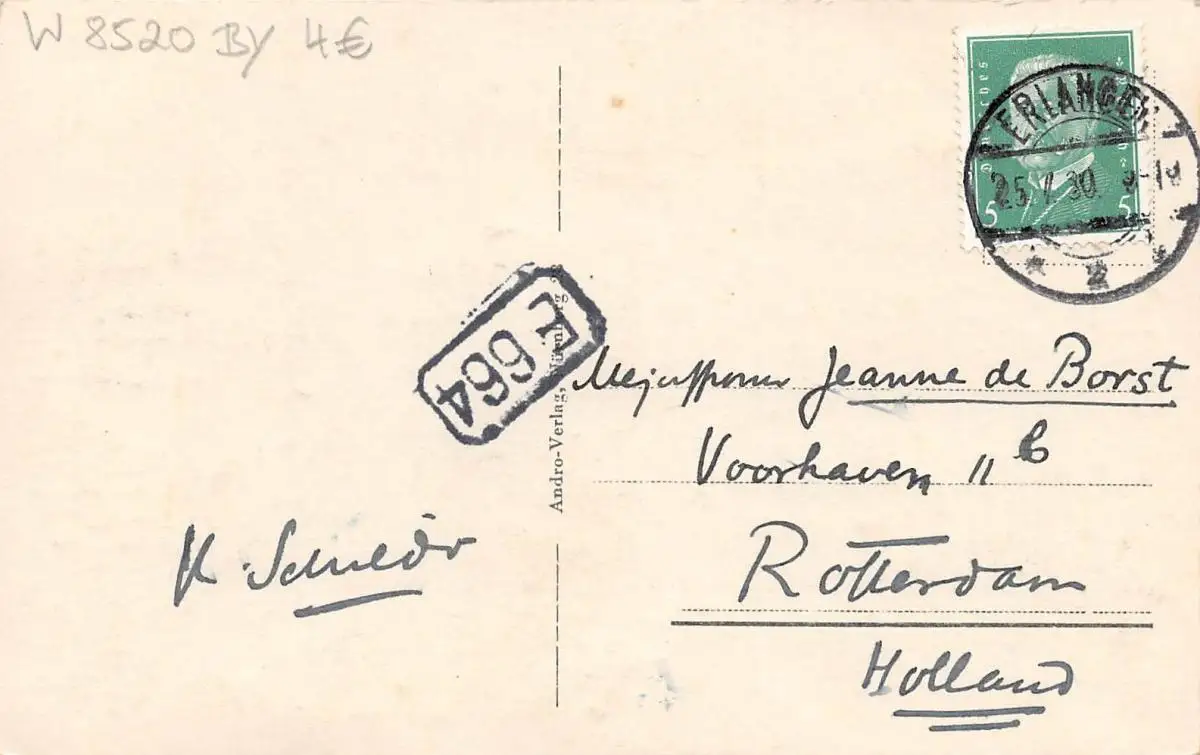 W 8520 BY 4€
5 5
ERLANGEN
25. 30
* 2 *
E 664
Andro-Verlag, Nürnberg
Jeanne de Borst
Voorhaven 11 b
Rotterdam
Holland